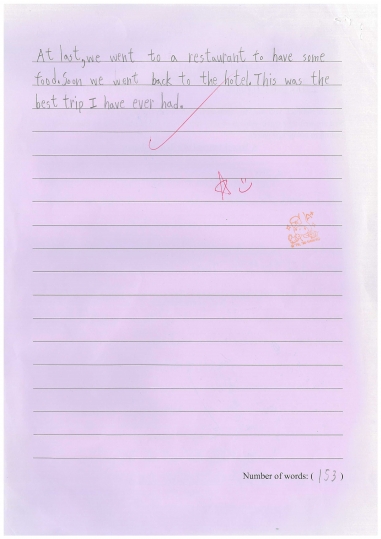 At last, we went to a restaurant to have some
food. Soon we went back to the hotel. This was the
best trip I have ever had.
Number of words: (153)